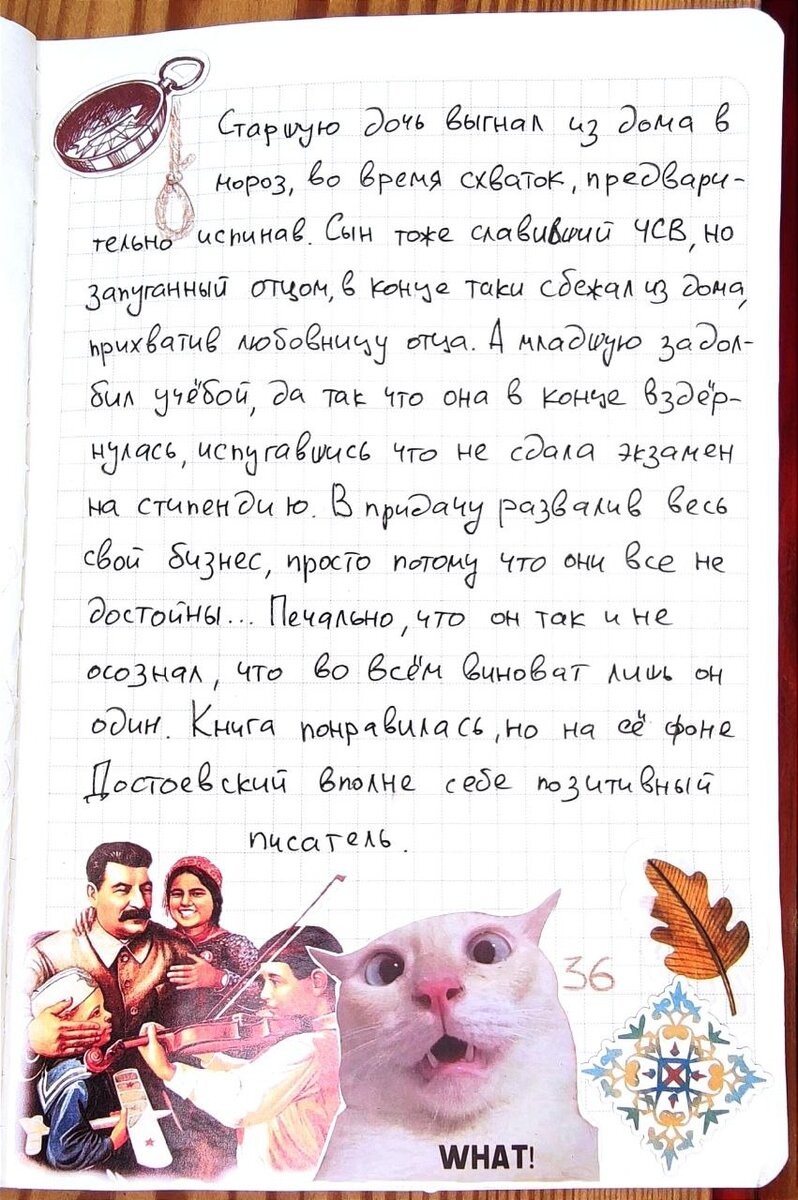 Старшую дочь выгнал из дома в
мороз, во время схваток, предвари-
тельно испинав. Сын тоже славивший ЧСВ, но
запуганный отцом, в конце таки сбежал из дома,
прихватив любовницу отца. А младшую задол-
бил учёбой, да так что она в конце вздёр-
нулась, испугавшись что не сдала экзамен
на стипендию. В придачу развалив весь
свой бизнес, просто потому что они все не
достойны... Печально, что он так и не
осознал, что во всём виноват лишь он
один. Книга понравилась, но на её фоне
Достоевский вполне себе позитивный
писатель.
36
WHAT!